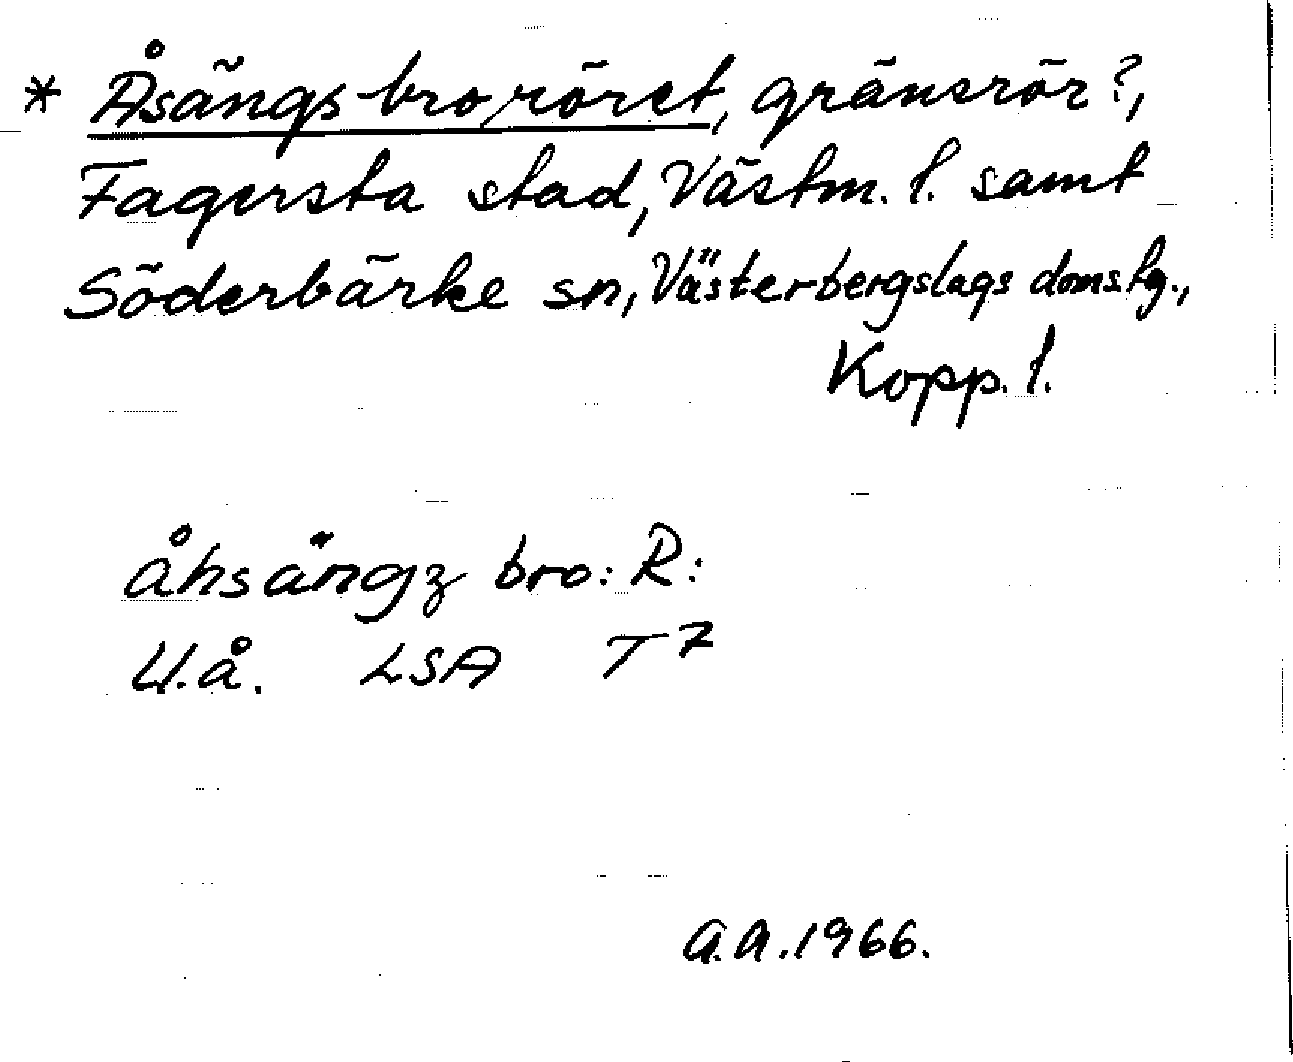 * Åsängsbroröret, gränsrör?,
Fagersta stad, Västm. l. samt
Söderbärke sn, Västerbergslags domsbg.,
Kopp. l.
åhsängz bro: R:
U.å. LSA T 7
A.A. 1966.